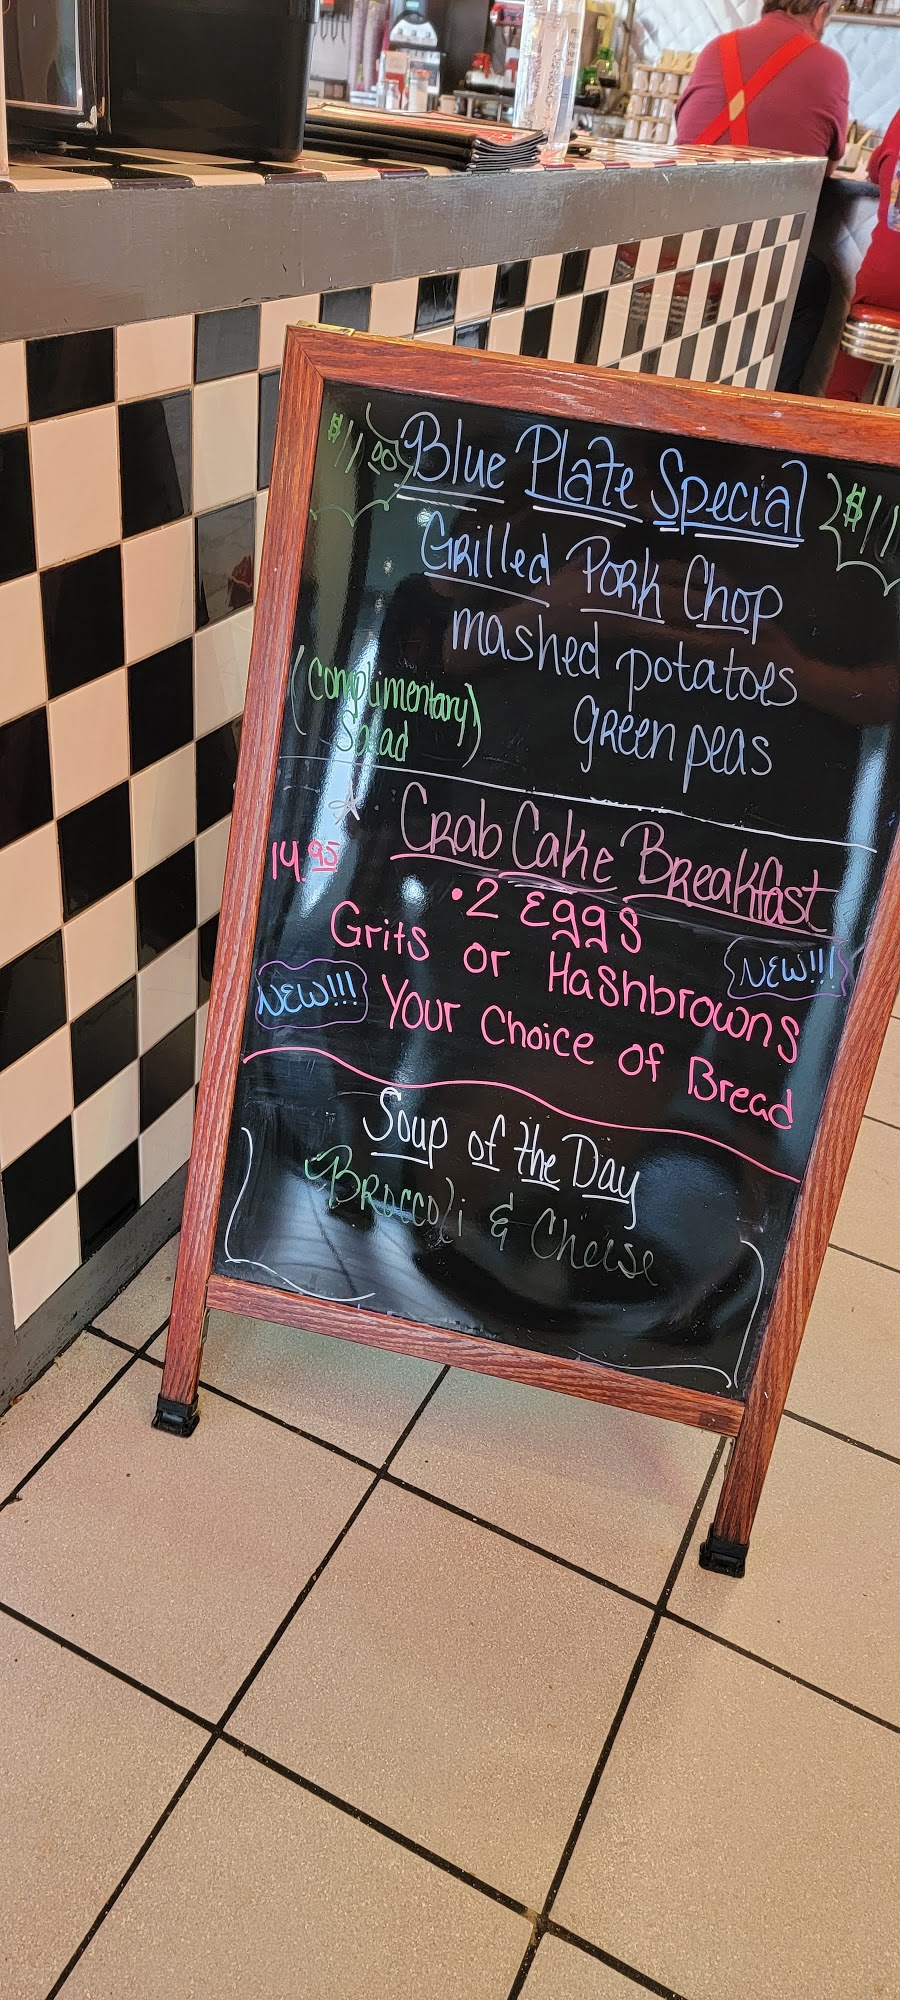 $11.00 Blue Plate Special $11
Grilled Pork Chop
mashed potatoes
(Complimentary)
Salad
green peas
Crab Cake Breakfast
14.95
• 2 Eggs
Grits or Hashbrowns
NEW!!!
NEW!!!
Your Choice of Bread
Soup of the Day
Broccoli & Cheese